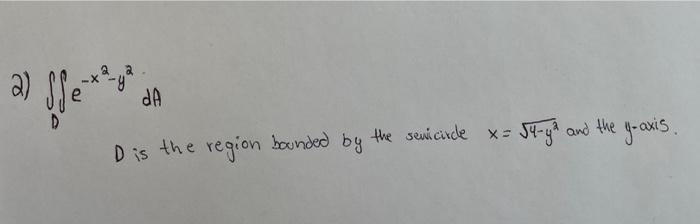 2) ∬e^{-x²-y²} dA
D
D is the region bounded by the semicircle x = √4-y² and the y-axis.